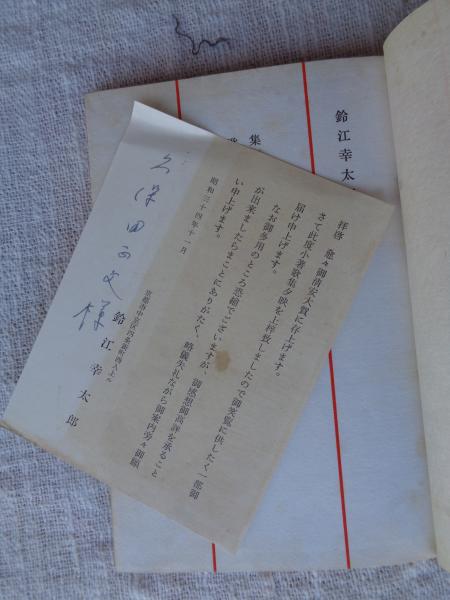 鈴江幸太
集
拝啓 愈々御清安大賀に存上げます。
さて此度小著歌集夕映を上梓致しましたので御笑覧に供したく一部御
届け申上げます。
なお御多用のところ恐縮でございますが、御感想御高評を承ること
が出来ましたらまことにありがたく、略儀失礼ながら御案内旁々御願
い申上げます。
昭和三十四年十一月
京都市中京区四条
鈴江幸太郎
久保田正文様